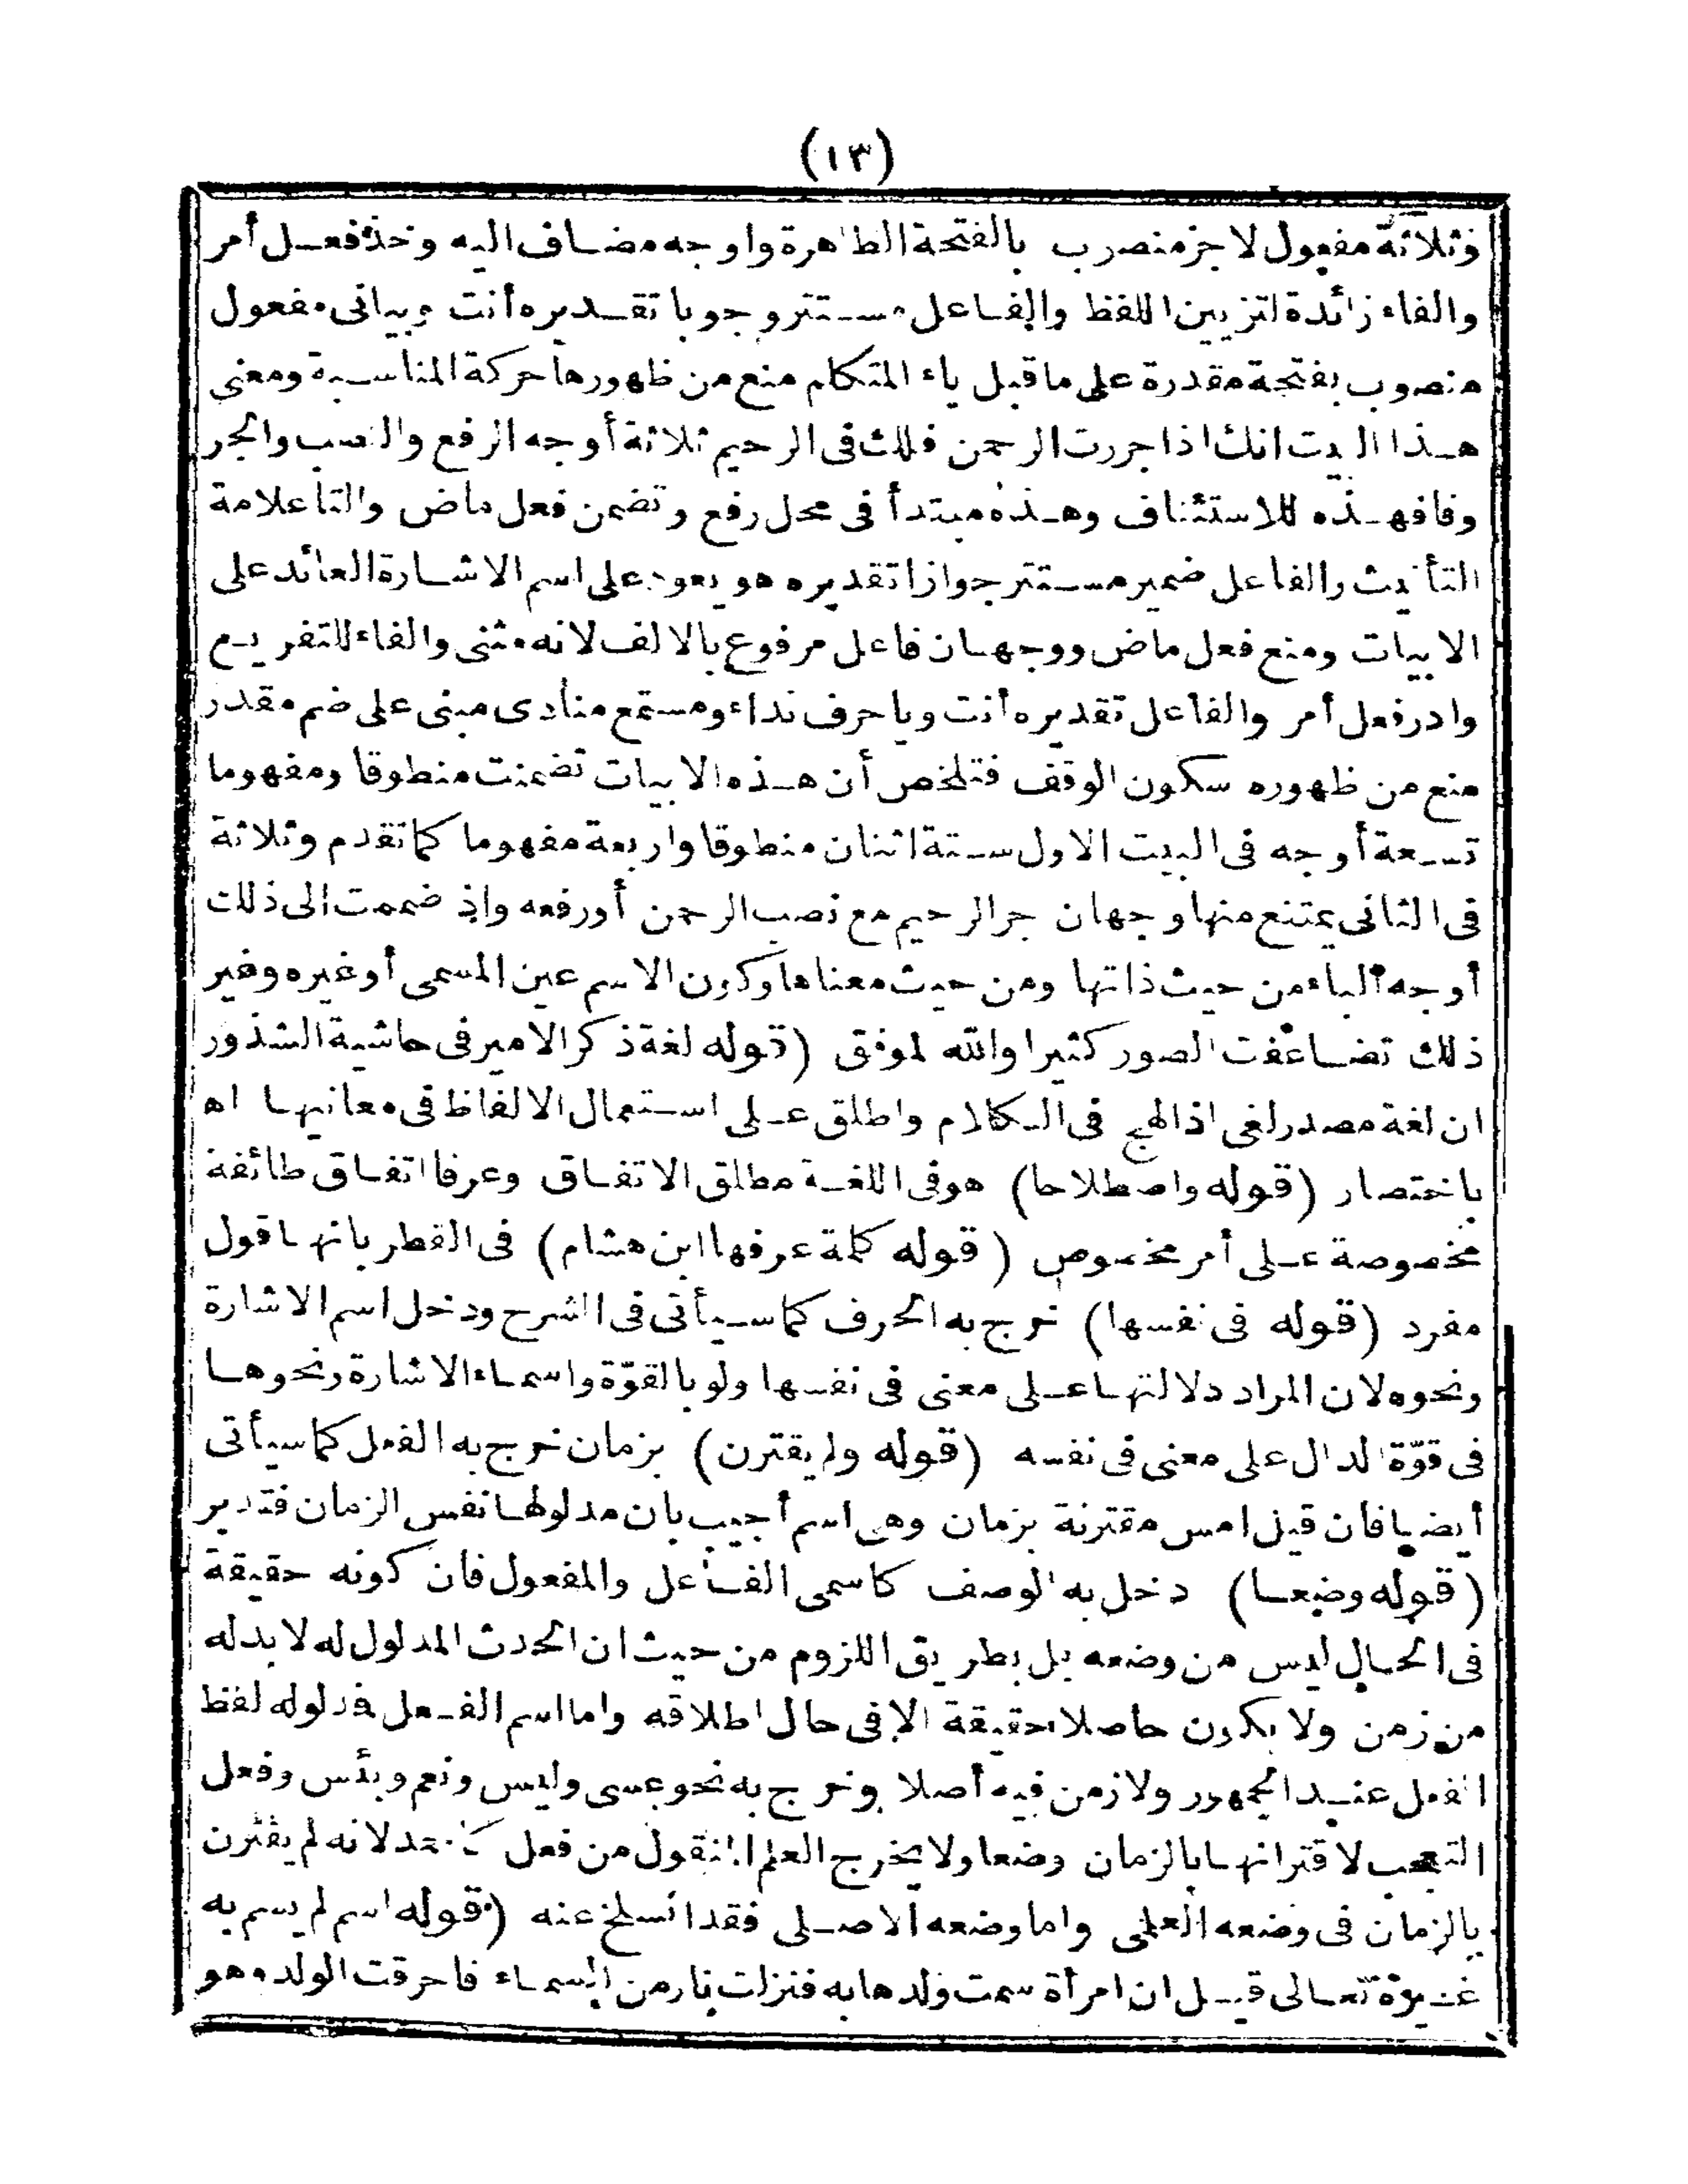 (١٣)
فثلاثة مفعول لاجز منصوب بالفتحة الظاهرة واوجه مضاف اليه وخذ فعل أمر
والفاء زائدة لتزيين اللفظ والفاعل مستتر وجوبا تقديره أنت وبيانى مفعول
منصوب بفتحة مقدرة على ما قبل ياء المتكلم منع من ظهورها حركة المناسبة ومعنى
هذا البيت انك اذا جررت الرحمن فلك فى الرحيم ثلاثة أوجه الرفع والنصب والجر
وفا فهذه للاستئناف وهذه مبتدأ فى محل رفع وتضمن فعل ماض والتا علامة
التأنيث والفاعل ضمير مستتر جوازا تقديره هو يعود على اسم الاشارة العائد على
الابيات ومنع فعل ماض ووجهان فاعل مرفوع بالالف لانه مثنى والفاء للتفريع
وادر فعل أمر والفاعل تقديره أنت ويا حرف نداء ومستمع منادى مبنى على ضم مقدر
منع من ظهوره سكون الوقف فتلخص أن هذه الابيات تضمنت منطوقا ومفهوما
تسعة أوجه فى البيت الاول ستة اثنان منطوقا واربعة مفهوما كما تقدم وثلاثة
فى الثانى يمتنع منها وجهان جر الرحيم مع نصب الرحمن أو رفعه واذ ضممت الى ذلك
أوجه الباء من حيث ذاتها ومن حيث معناها وكون الاسم عين المسمى أو غيره وغير
ذلك تضاعفت الصور كثيرا والله الموفق (قوله لغة ذكر الامير فى حاشية الشذور
ان لغة مصدر لغى اذا لهج فى الكلام واطلق على استعمال الالفاظ فى معانيها اه
باختصار (قوله واصطلاحا) هو فى اللغة مطلق الاتفاق وعرفا اتفاق طائفة
مخصوصة على أمر مخصوص (قوله كلمة عرفها ابن هشام) فى القطر بانها قول
مفرد (قوله فى نفسها) خرج به الحرف كما سيأتى فى الشرح ودخل اسم الاشارة
ونحوه لان المراد دلالتها على معنى فى نفسها ولو بالقوّة واسماء الاشارة ونحوها
فى قوّة الدال على معنى فى نفسه (قوله ولم يقترن) بزمان خرج به الفعل كما سيأتى
أيضا فان قيل امس مقترنة بزمان وهى اسم أجيب بان مدلولها نفس الزمان فتدبر
(قوله وضعا) دخل به الوصف كاسمى الفاعل والمفعول فان كونه حقيقة
فى الحال ليس من وضعه بل بطريق اللزوم من حيث ان الحدث المدلول له لا بد له
من زمن ولا يكون حاصلا حقيقة الا فى حال اطلاقه واما اسم الفعل فمدلوله لفظ
الفعل عند الجمهور ولا زمن فيه أصلا وخرج به نحو عسى وليس ونعم وبئس وفعل
التعجب لاقترانها بالزمان وضعا ولا يخرج العلم المنقول من فعل لانه لم يقترن
بالزمان فى وضعه العلمى واما وضعه الاصلى فقد انسلخ عنه (قوله اسم لم يسم به
غيره تعالى قيل ان امرأة سمت ولدها به فنزلت نار من السماء فاحرقت الولد وهو